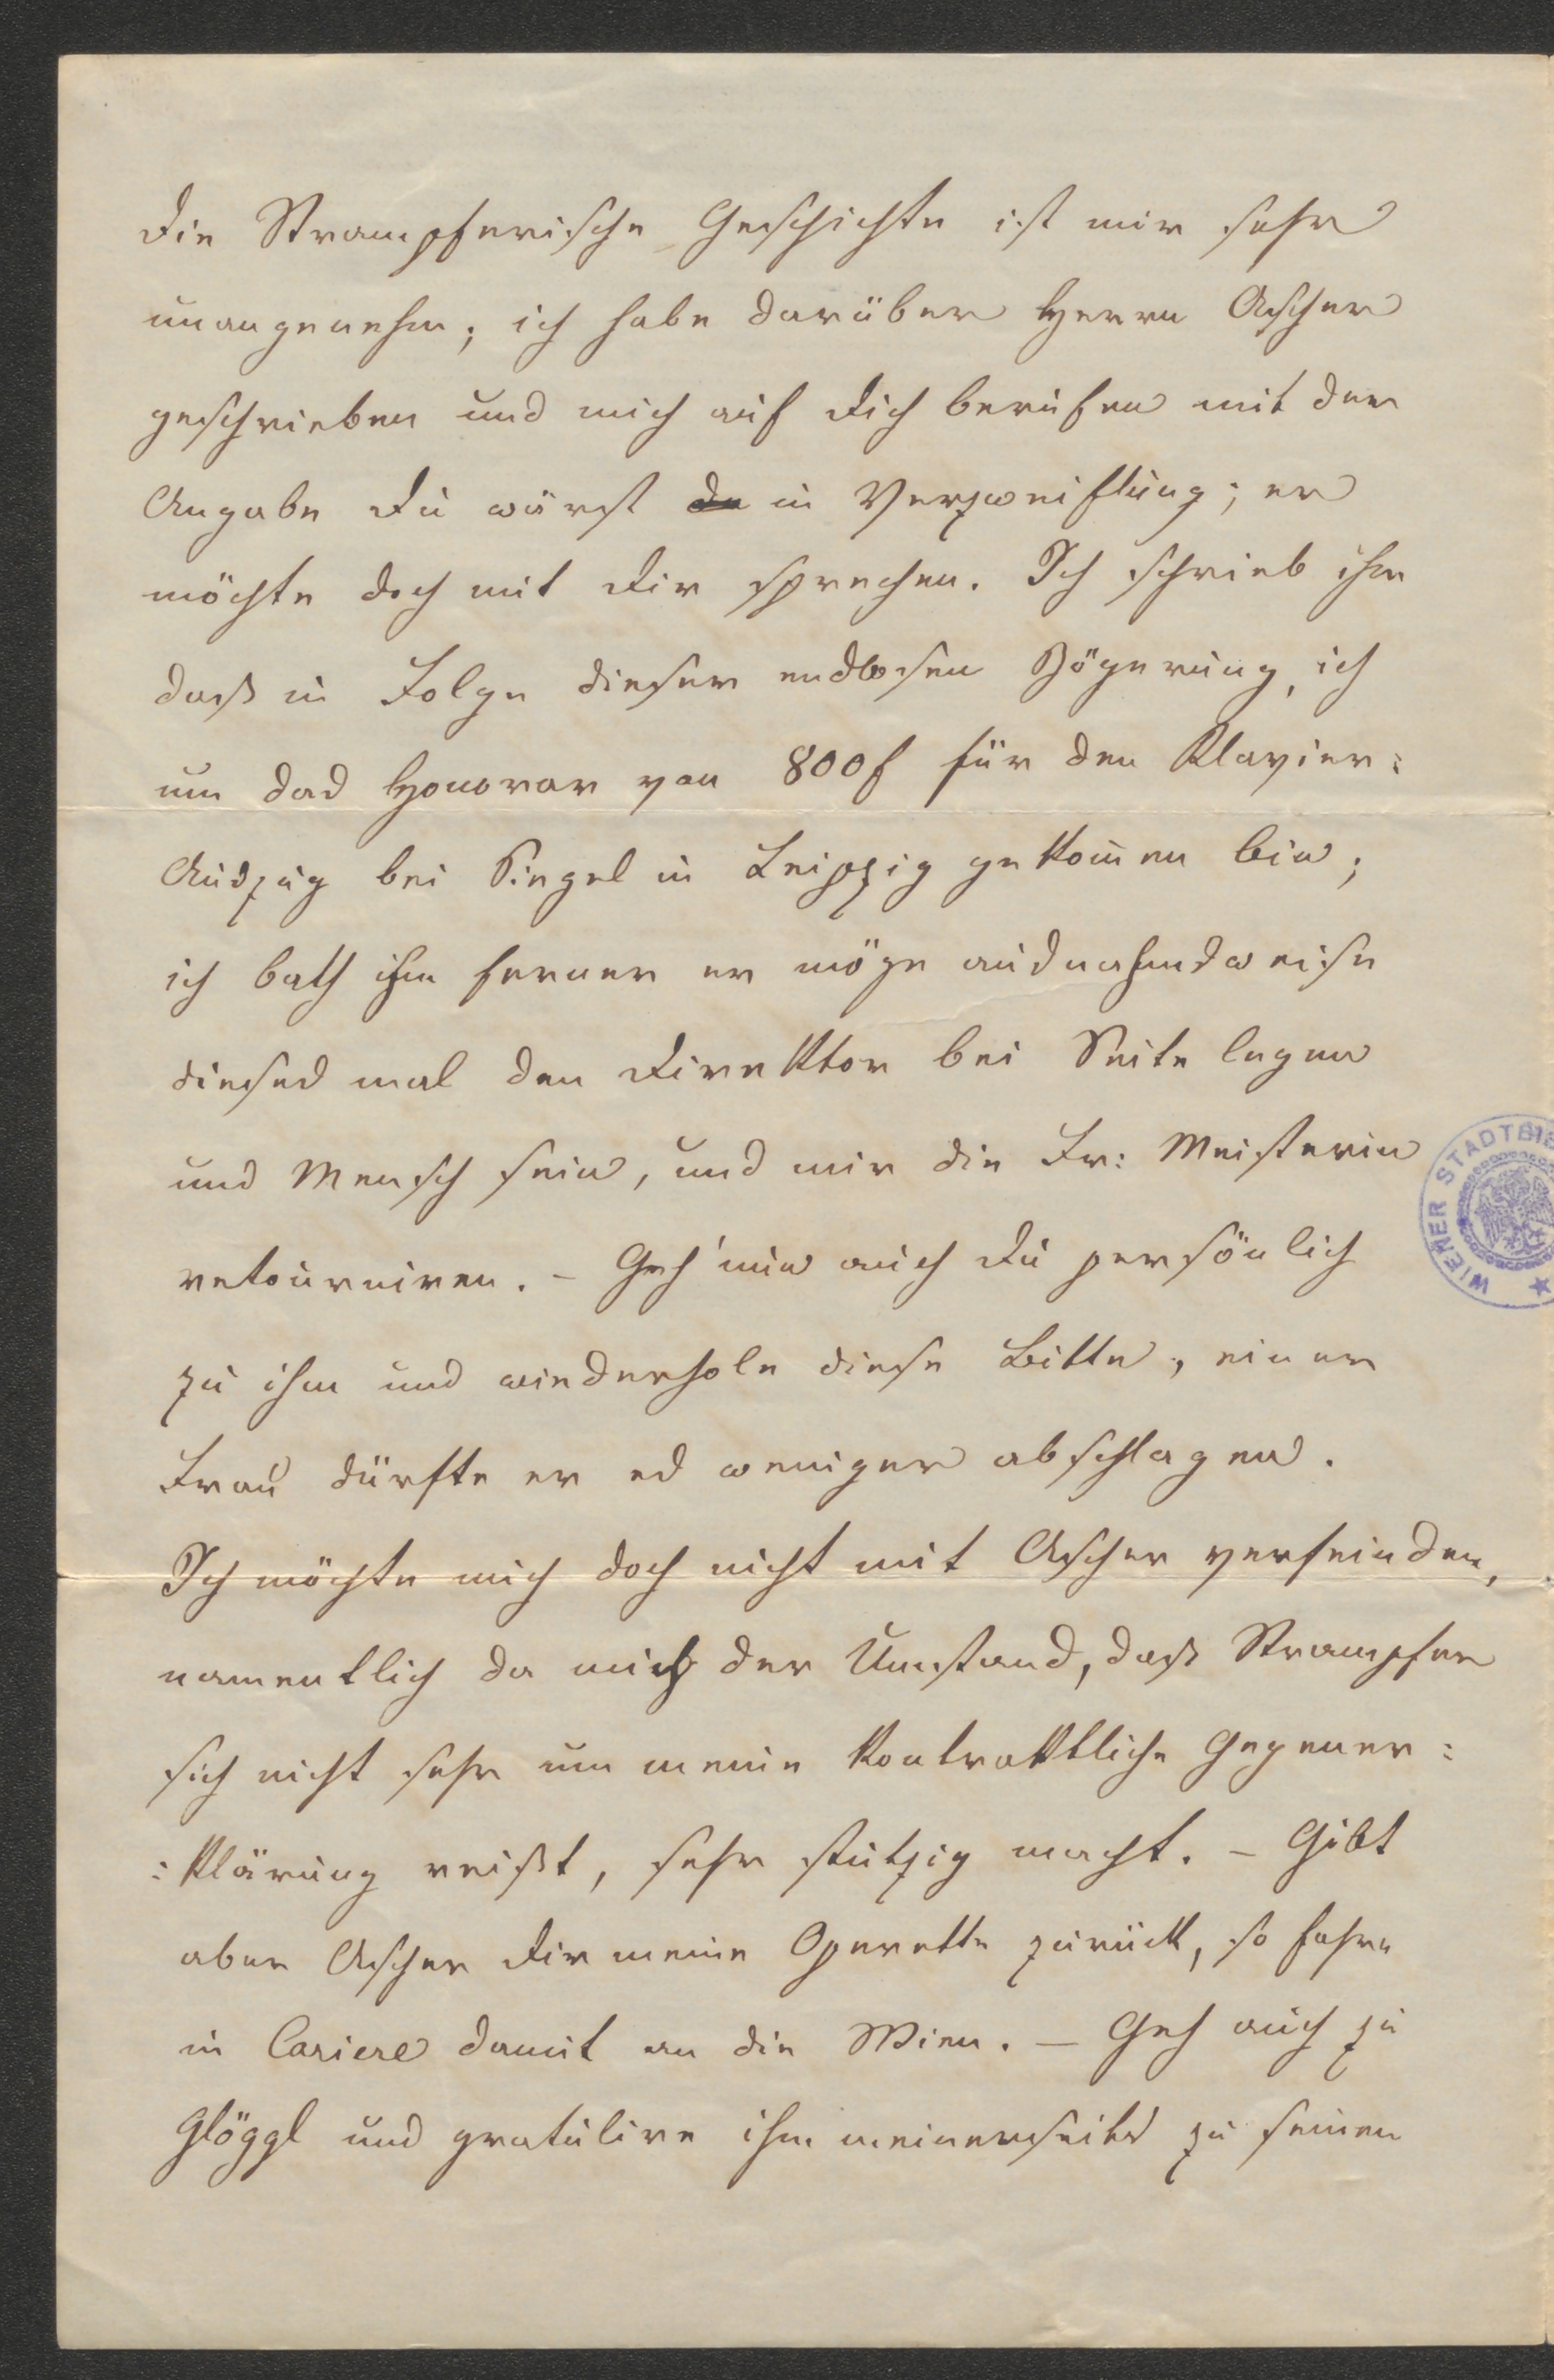 Die Strampferische Geschichte ist mir sehr
unangenehm; ich habe darüber Herrn Ascher
geschrieben und mich auf Dich berufen mit der
Angabe Du wärst da in Verzweiflung; er
möchte doch mit Dir sprechen. Ich schrieb ihm
daß in Folge dieser endlosen Zögerung, ich
um das Honorar von 800f für den Klavier:
Auszug bei Siegel in Leipzig gekom̅en bin;
ich bath ihm ferner er möge ausnahmsweise
dieses mal den Direktor bei Seite legen
und Mensch sein, und mir die Fr: Meisterin
retourniren. – Geh' nun auch Du persönlich
zu ihm und wiederhole diese Bitte, einer
Frau dürfte er es weniger abschlagen.
Ich möchte mich doch nicht mit Ascher verfeinden,
namentlich da mich der Umstand, daß Strampfer
sich nicht sehr um meine Kontraktliche Gegener:
:klärung reißt, sehr stutzig macht. – Gibt
aber Ascher Dir meine Operette zurück, so fahre
in Cariere damit an die Wien. – Geh auch zu
Glöggl und gratulire ihm meinerseits zu seinen
WIENER STADTBIB